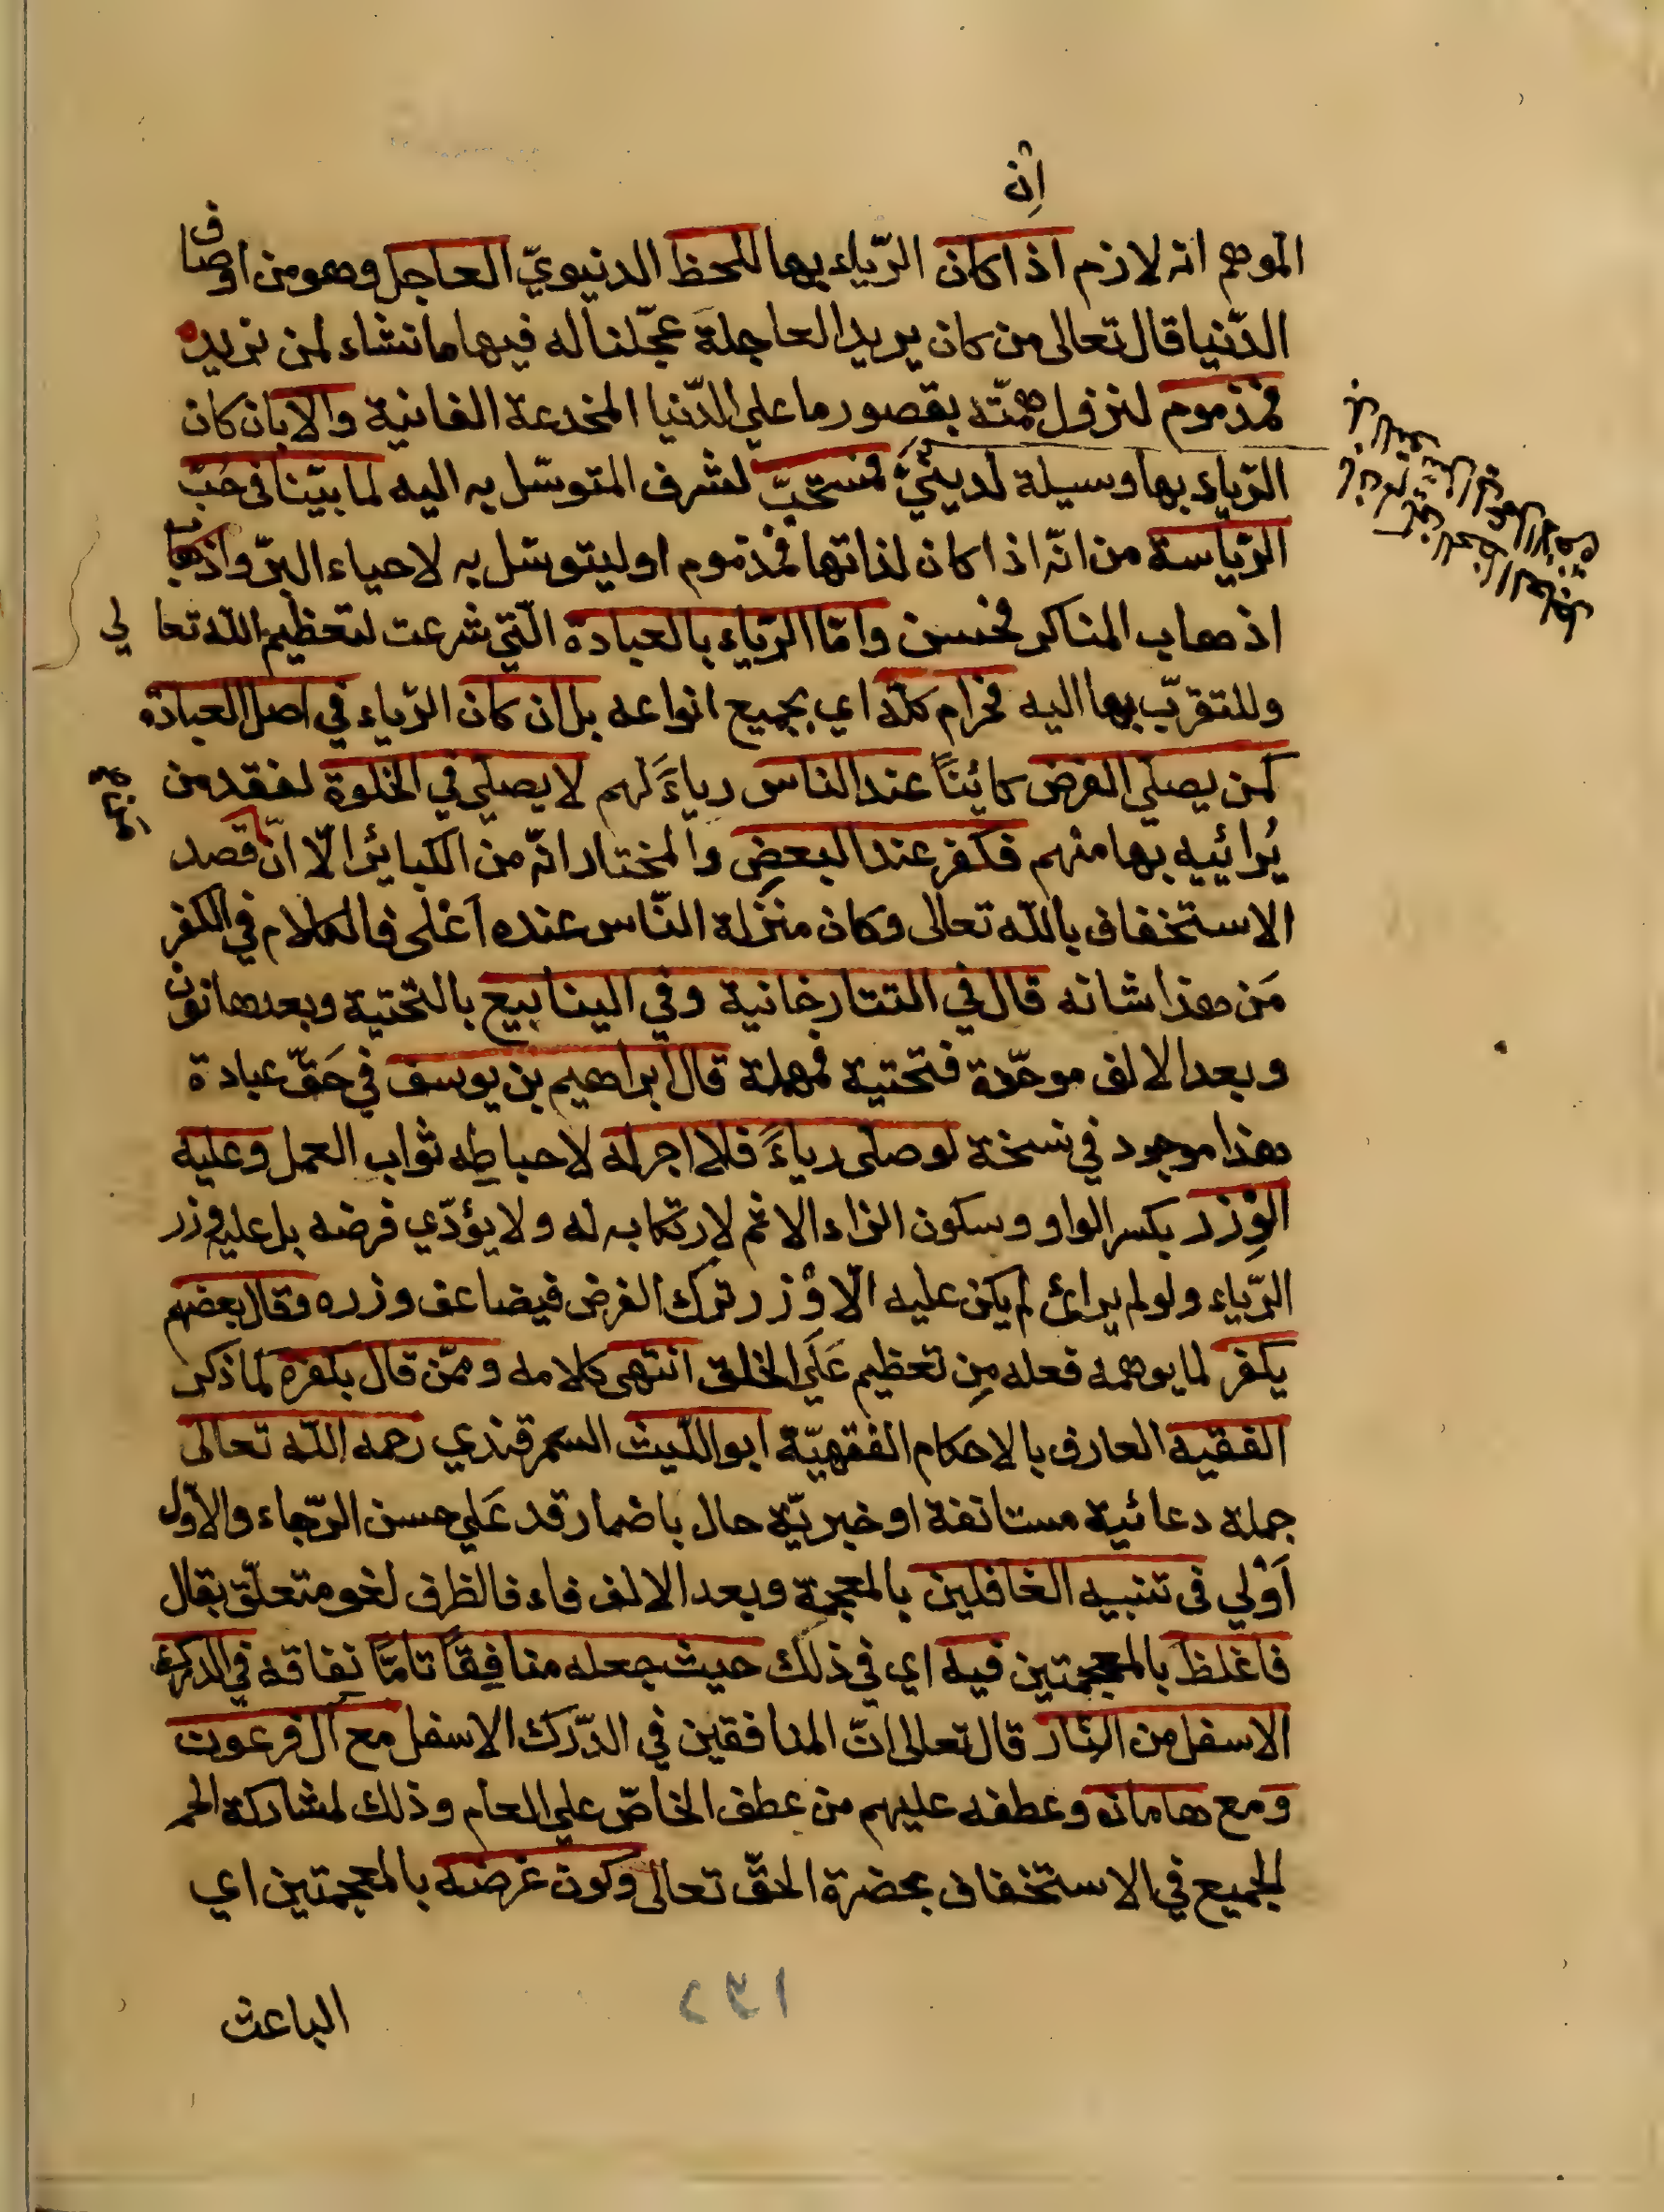 اِن
الموهم انه لازم اذا كان الرّياء بها للحظ الدنيويّ العاجل وهو من اوصاف
الدّنيا قال تعالى من كان يريد العاجلة عجّلنا له فيها ما نشاء لمن نريد
فمذموم لنزول همّته بقصور ما على الدّنيا المخدعة الفانية والا بان كان
الرّياء بها وسيلة لدينيّ فمستحبّ لشرف المتوسّل به اليه لما بيّنا فى حبّ
الرّياسة من انّه اذا كان لذاتها فمذموم او ليتوسّل به لاحياء البرّ واذهاب
اذهاب المناكر فحسن وامّا الرّياء بالعبادة الّتي شرعت لتعظيم اللّه تعالي
وللتقرّب بها اليه فحرام كلّه اي بجميع انواعه بل ان كان الرّياء في اصل العبادة
كمن يصلّي الفرض كائنًا عند الناس رياءً لهم لا يصلّي في الخلوة لفقد من
يُرائيه بها منهم فكفر عند البعض والمختار انّه من الكبائر الّا انّ قصد
الاستخفاف باللّه تعالى وكان منزلة النّاس عنده اَعْلى فالكلام في الكفر
مَن هذا شانه قال في التتارخانية وفي الينابيع بالتحتية وبعدها نون
وبعد الالف موحّدة فتحتية فمهملة قال ابراهيم بن يوسف في حَقّ عبادة
هذا موجود في نسخة لو صلى رياءً فلا اجر له لاحباطِه ثواب العمل وعليه
الوِزر بكسر الواو وسكون الزاء الاثم لارتكابه له ولا يؤدّي فرضه بل عليه وزر
الرّياء ولو لم يرائ لم يكن عليه الّا وْزر ترك الفرض فيضاعف وزره وقال بعضهم
يكفر لما يوهمه فعله مِن تعظيم عَلَى الخلق انتهى كلامه وممّن قال بكفره لما ذكر
الفقيه العارف بالاحكام الفقهيّة ابو اللّيث السمرقندي رحمه اللّه تعالى
جملة دعائية مستانفة او خبريّة حال باضمار قد عَلى حسن الرّجاء والاوّل
اَوْلي فى تنبيه الغافلين بالمعجمة وبعد الالف فاء فالظرف لغو متعلّق بقال
فاغلظ بالمعجمتين فيه اي في ذلك حيث جعله منافِقًا تامًّا نِفاقه في الدرك
الاسفل من النّار قال تعالى انّ المنافقين في الدّرك الاسفل مع آل فرعون
ومع هامان وعطفه عليهم من عطف الخاصّ على العام وذلك لمشاركة الجم
الجميع في الاستخفاف بحضرة الحقّ تعالى وكون غرضه بالمعجمتين اي
الباعث